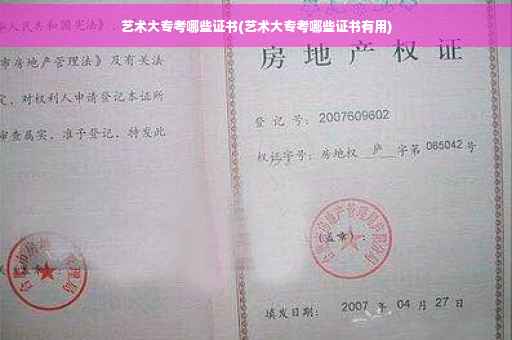 艺术大专考哪些证书(艺术大专考哪些证书有用)
人民共和国宪法》、
市房地产管理法》及有关法
定，对权利人申请登记本证所
审查属实，准予登记，特发此
房地产权证
登记号：2007609602
权证字号：房地权 庐 字第 085042 号
(盖章)：
房地产管理局
填发日期： 2007 年 04 月 27 日